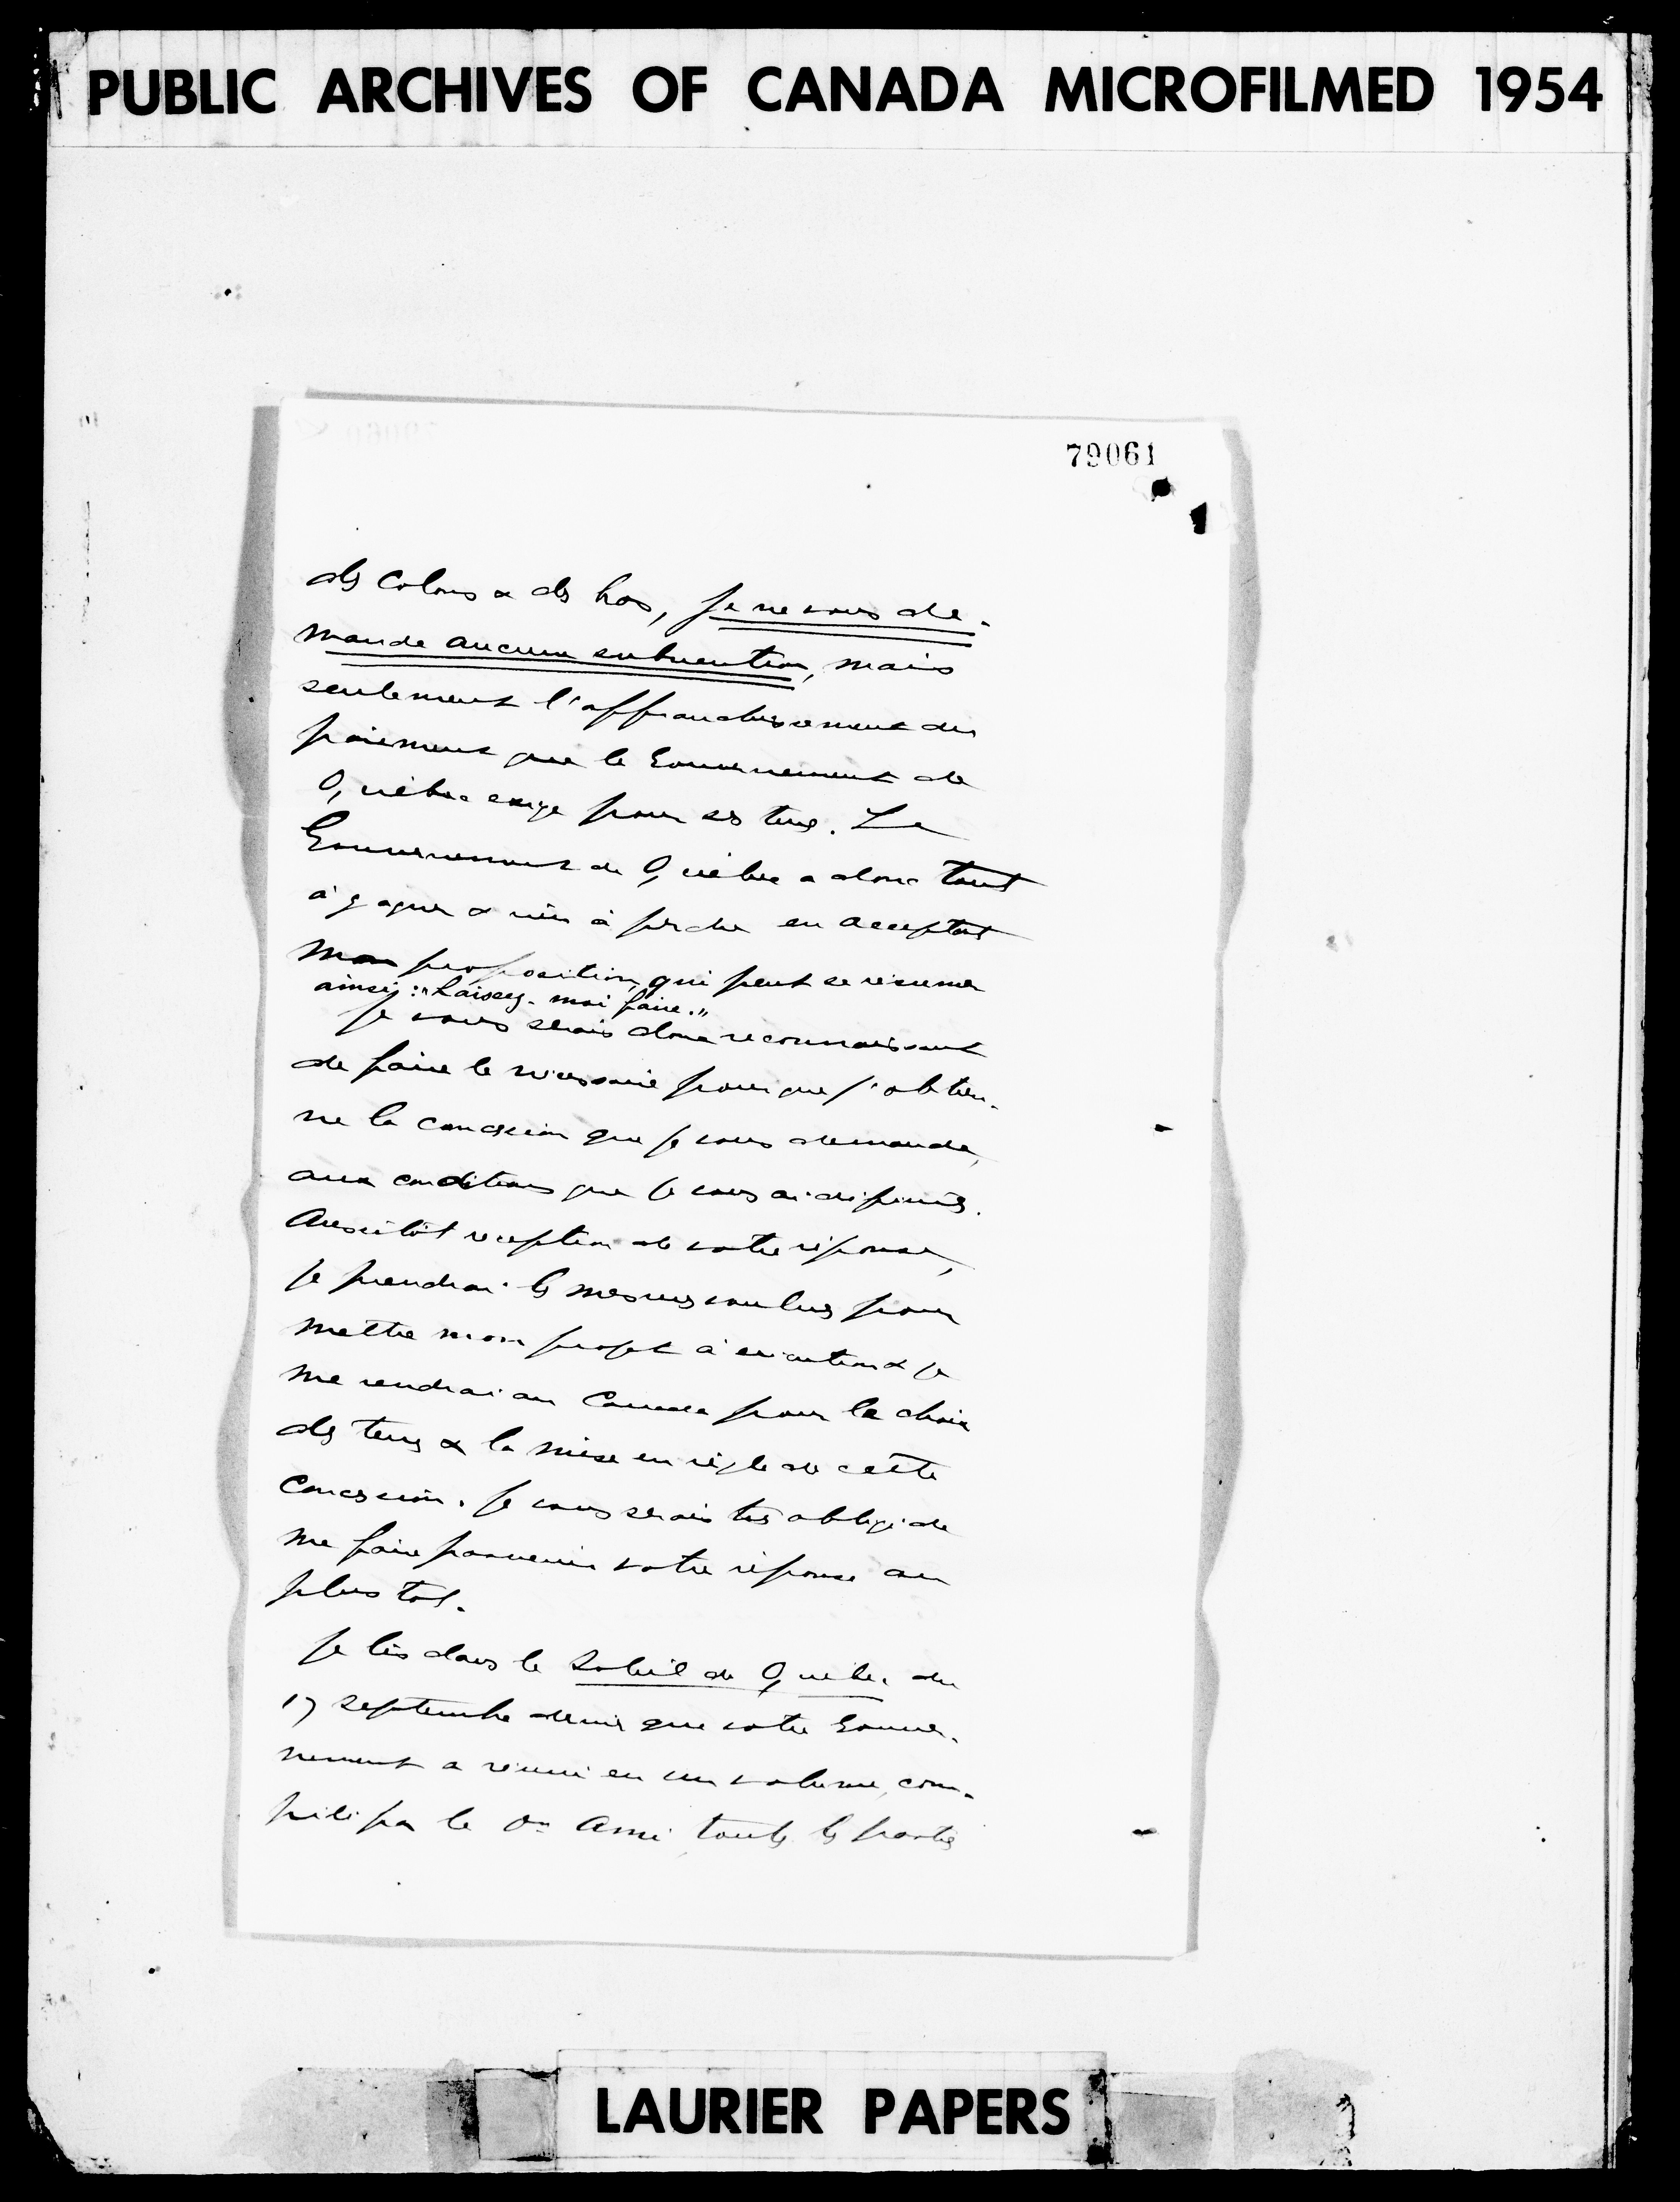 PUBLIC ARCHIVES OF CANADA MICROFILMED 1954
79061
des colons & des bras, je ne vous de-
mande aucune subvention, mais
seulement l'affranchissement du
paiement que le Gouvernement de
Québec exige pour ses terres. Le
Gouvernement de Québec a donc tout
à gagner & rien à perdre en acceptant
mon proposition, qui peut se résumer
ainsi : "Laissez-moi faire."
Je vous serais donc reconnaissant
de faire le nécessaire pour que j'obtien-
ne la concession que je vous demande,
aux conditions que je vous ai
Aussitôt reception de votre réponse,
je prendrai les mesures voulues pour
mettre mon projet à exécution & je
me rendrai au Canada pour le choix
des terres & la mise en règle de cette
concession. Je vous serais très obligé de
me faire parvenir votre réponse au
plus tôt.
Je lis dans le Soleil de Québec du
17 septembre dernier que votre Gouver-
nement a réuni en un volume, com-
pilé par le Dr Ami, toutes les parties
LAURIER PAPERS